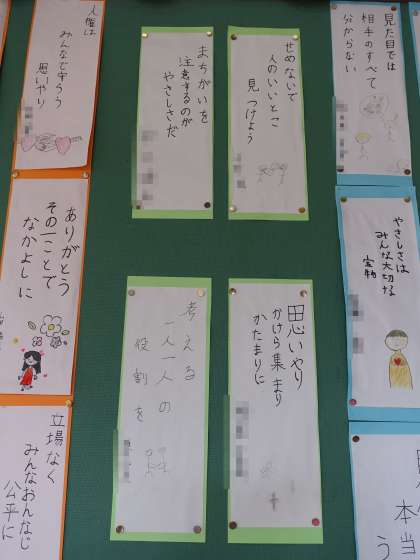 見た目では
相手のすべて
分からない
せめないで
人のいいとこ
見つけよう
まちがいを
注意するのが
やさしさだ
人権は
みんなで守ろう
思いやり
やさしさは
みんな大切な
宝物
ありがとう
その一ことで
なかよしに
思いやり
かけら集まり
かたまりに
考える
一人一人の
役割を
本当
う
立場なく
みんなおんなじ
公平に